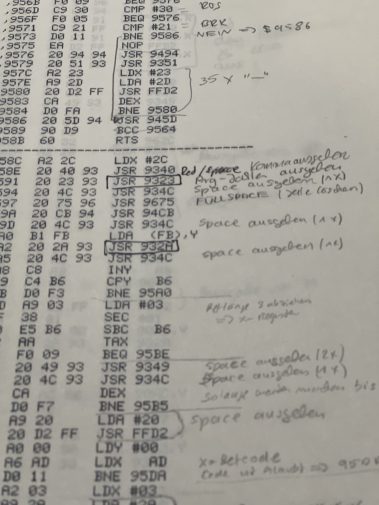 ,956B F0 09 BEQ 9576
,956D C9 30 CMP #30 → ROS
,956F F0 05 BEQ 9576
,9571 C9 21 CMP #21 → BRK
,9573 D0 11 BNE 9586 NEW => $9586
,9575 EA NOP
,9576 20 94 94 JSR 9494
,9579 20 51 93 JSR 9351
957C A2 23 LDX #23
957E A9 2D LDA #2D 35 x "—"
9580 20 D2 FF JSR FFD2
9583 CA DEX
9584 D0 FA BNE 9580
9586 20 5D 94 JSR 945D
9589 90 D9 BCC 9564
958B 60 RTS
58C A2 2C LDX #2C
58E 20 40 93 JSR 9340 / Space Komma ausgeben
591 20 23 93 JSR 9323 ausgeben
594 20 4C 93 JSR 934C Space ausgeben (1x)
597 20 75 96 JSR 9675 FULLSPACE (Zeile löschen)
9A 20 CB 94 JSR 94CB
9D 20 4C 93 JSR 934C space ausgeben (1x)
A0 B1 FB LDA (FB),Y
A2 20 2A 93 JSR 932A
A5 20 4C 93 JSR 934C space ausgeben (1x)
C8 INY
C4 B6 CPY B6
D0 F3 BNE 95A0
A9 03 LDA #03
38 SEC
E5 B6 SBC B6
AA TAX
F0 09 BEQ 95BE
20 49 93 JSR 9349 space ausgeben (2x)
20 4C 93 JSR 934C space ausgeben (1x)
CA DEX
D0 F7 BNE 95B5 bis
A9 20 LDA #20
20 D2 FF JSR FFD2 space ausgeben
A0 00 LDY #00
A6 AD LDX AD
D0 11 BNE 95DA
A2 03 LDX #03